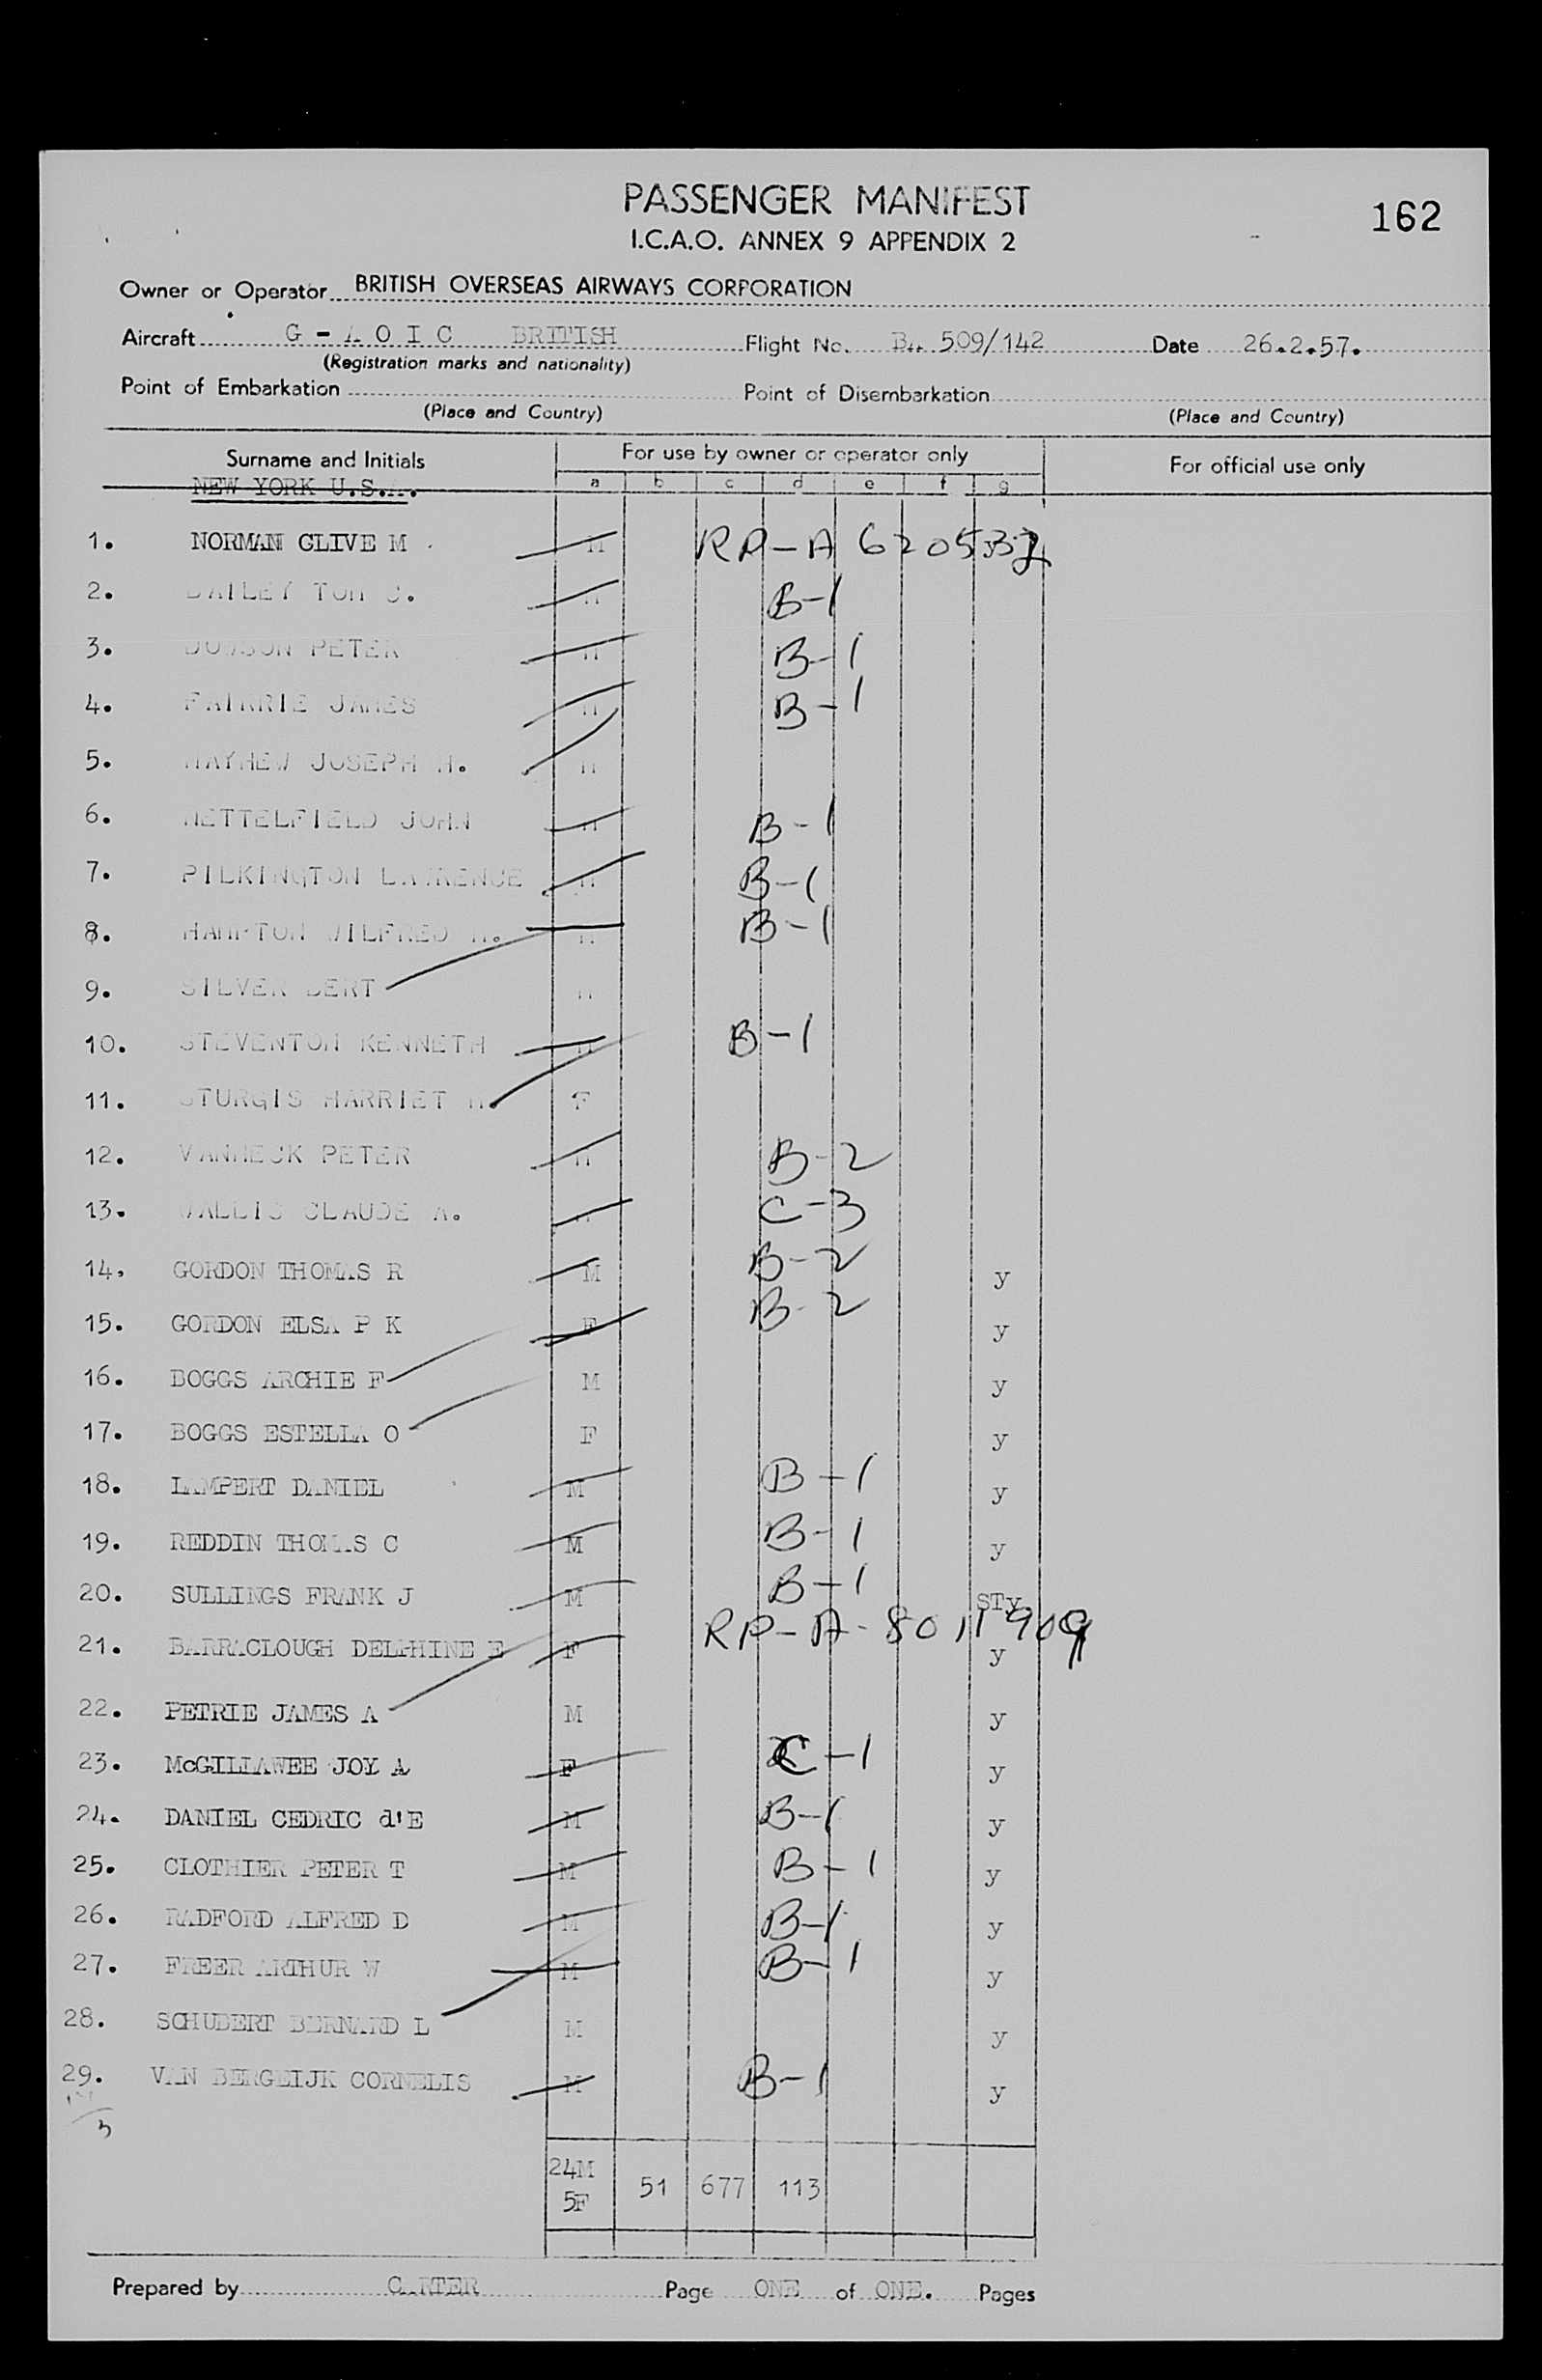 PASSENGER MANIFEST
162
I.C.A.O. ANNEX 9 APPENDIX 2
Owner or Operator BRITISH OVERSEAS AIRWAYS CORPORATION
Aircraft G - A O I C BRITISH Flight No. BA 509/142 Date 26.2.57.
(Registration marks and nationality)
Point of Embarkation Point of Disembarkation
(Place and Country) (Place and Country)
Surname and Initials For use by owner or operator only For official use only
NEW YORK U.S.A. a b c d e f g
1. NORMAN CLIVE M . M RP-A 620533
2. BAILEY TOM C. M B-1
3. DOBSON PETER M B-1
4. FAIRRIE JAMES M B-1
5. MAYHEW JOSEPH H. M
6. NETTELFIELD JOHN M B-1
7. PILKINGTON LAWRENCE M B-1
8. HAMPTON WILFRED M B-1
9. SILVER BERT M
10. STEVENTON KENNETH M B-1
11. STURGIS HARRIET F
12. VANNECK PETER M B-2
13. WALLIS CLAUDE A. M C-3
14. GORDON THOMAS R M B-2 y
15. GORDON ELSA P K F B-2 y
16. BOGGS ARCHIE F M y
17. BOGGS ESTELLA O F y
18. LAMPERT DANIEL M B-1 y
19. REDDIN THOMAS C M B-1 y
20. SULLINGS FRANK J M B-1 STy
21. BARRACLOUGH DELPHINE E F RP-A-8011909 y
22. PETRIE JAMES A M y
23. McGILLAWEE JOY A F C-1 y
24. DANIEL CEDRIC d'E M B-1 y
25. CLOTHIER PETER T M B-1 y
26. RADFORD ALFRED D M B-1 y
27. FREER ARTHUR W M B-1 y
28. SCHUBERT BERNARD L M y
29. VAN BERGEIJK CORNELIS M B-1 y
24M
51 677 113
5F
Prepared by CARTER Page ONE of ONE. Pages